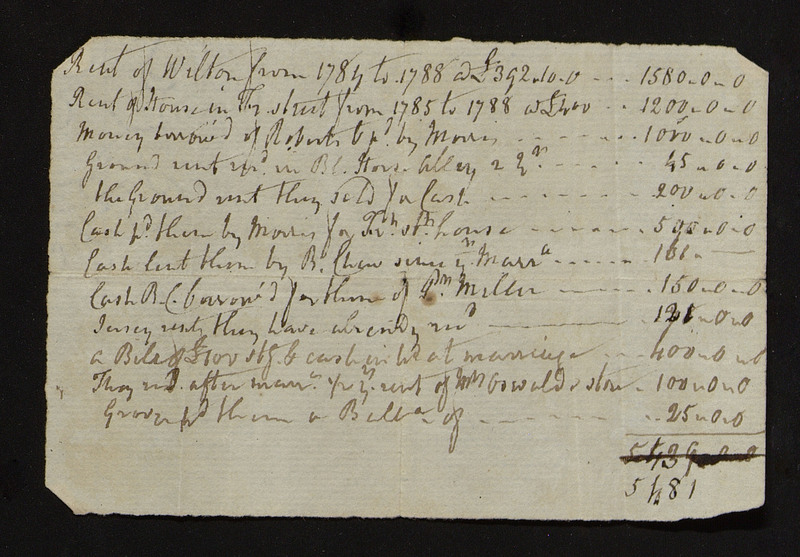 Rent of Wilton from 1784 to 1788 a £392.10.0 - - - 1580..0..0
Rent of House in Fr. street from 1785 to 1788 a £400 1200..0..0
Money borrow'd of Roberts & pd. by Morris - - - - 100..0..0
Ground rent recd. in Bl. Horse Alley 2 yrs - - - - 45..0..0
the Ground rent they sold for Cash - - - - - - 200..0..0
Cash pd them by Morris for Frt. st. house - - - - 500..0..0
Cash lent them by B. Chew since yr. Marra - - - - 161..
Cash B.C. borrow'd for them of Wm Miller - - - 150..0..0
Jersey rents they have already recd - - - 120..0..0
a Bill of £100 Stg & cash in hd at marriage - - 400..0..0
They recd. after marr. yr. rent of Mrs Oswald's store - 100..0..0
Grover pd them a Balla. of - - - - - - - 25..0..0
5439..0..0
5481